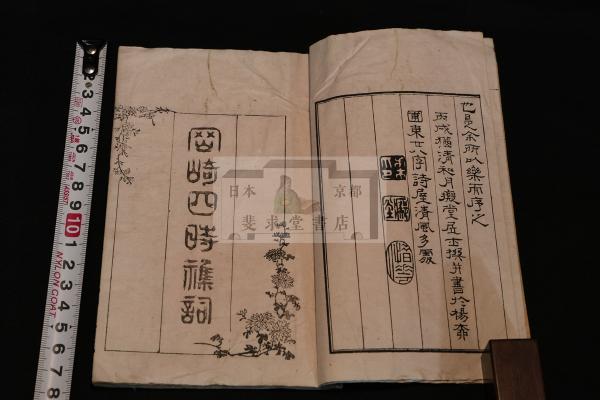 也是余所以樂而序之
丙戌猶清和月堂居士撰并書於楊
圃東廿八字詩屋清風多處
岡崎四時襍詞
日本 京都
斐求堂書店
2 3 4 5 6 7 8 9 10 1 2 3 4 5 6 7 8
NYLON COAT